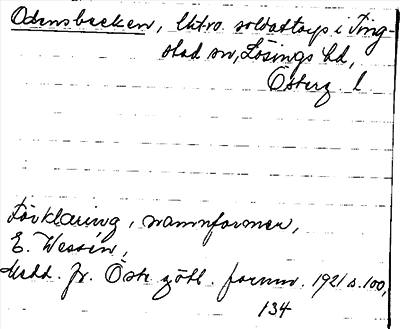 Odensbacken, Utro. soldattorp i Ting-
stad sn, Lösings hd,
Österg. l.
Förklaring, namnformer,
E. Wessén,
Medd. fr. Östergötl. fornm. 1921 s. 100,
134